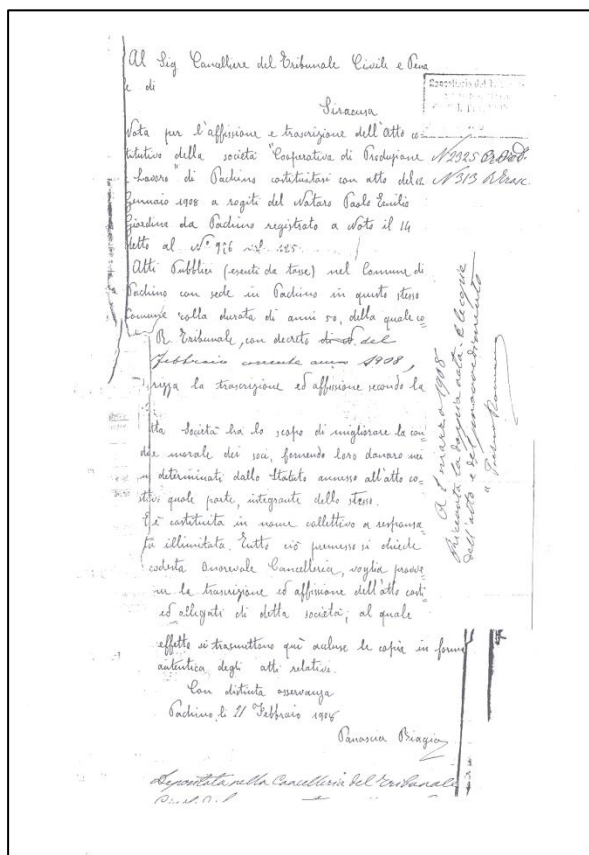 Al Sig Cancelliere del Tribunale Civile e Pena
e di
Siracusa
Cancelleria del
Nota per l'affissione e trascrizione dell'Atto co=
titutivo della società "Cooperativa di Produzione
e Lavoro" di Pachino costituitasi con atto del 12
Gennaio 1908 a rogiti del Notaro Paolo Emilio
Giardina da Pachino registrato a Noto il 14
detto al N° 976 vol. 125
N 2325
N 313
Atti Pubblici (esenti da tasse) nel Comune di
Pachino con sede in Pachino in questo stesso
Comune colla durata di anni 50, della quale co=
R. Tribunale, con decreto del
febbraio corrente anno 1908,
rizza la trascrizione ed affissione secondo la
tta Società ha lo scopo di migliorare la con
morale dei soci, fornendo loro danaro nei
determinati dallo Statuto annesso all'atto co=
quale parte, integrante dello stesso.
è costituita in nome collettivo a responsa
tà illimitata. Tutto ciò premesso si chiede
codesta Onorevole Cancelleria, voglia provve=
la trascrizione ed affissione dell'atto costi
ed allegati di detta società; al quale
effetto si trasmettono quì accluse le copie in forma
autentica degli atti relativi.
Con distinta osservanza
Pachino li 21 Febbraio 1908
Panascia Biagio
A 1 marzo 1908
Ricevuta la doppia nota. e le copie
dell'atto e del provvedimento
Depositata nella Cancelleria del Tribunale